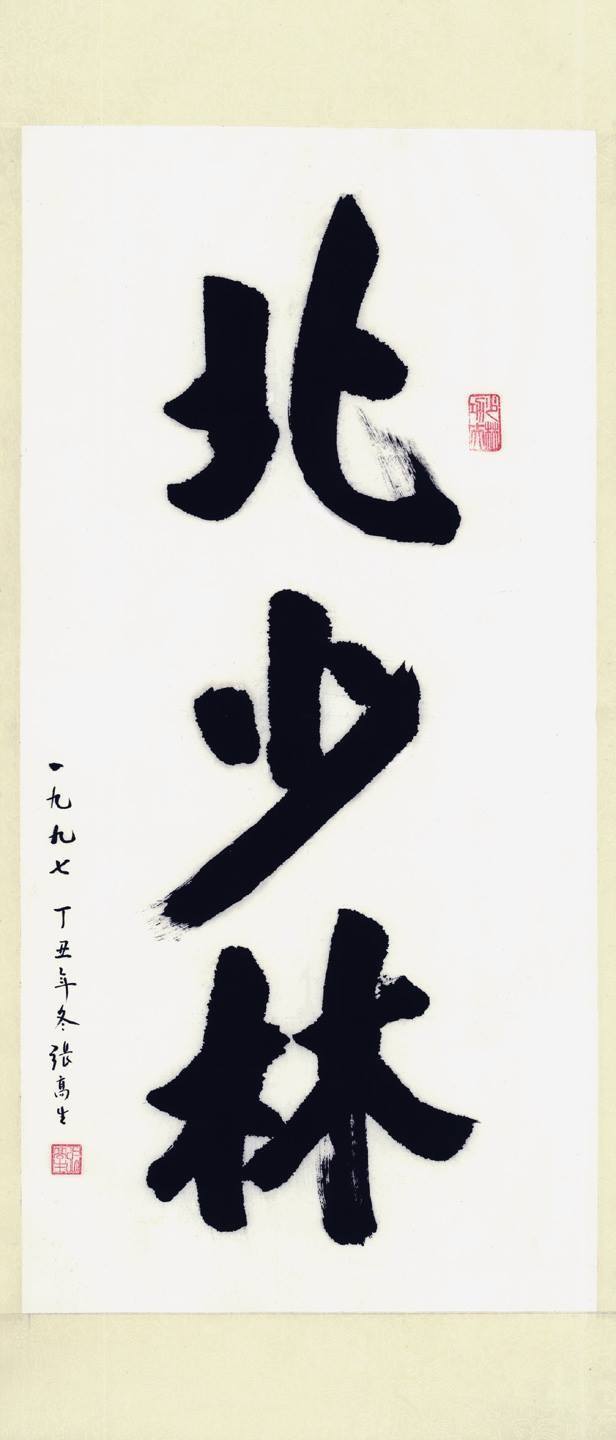 北少林
一九九七 丁丑年冬 張高生